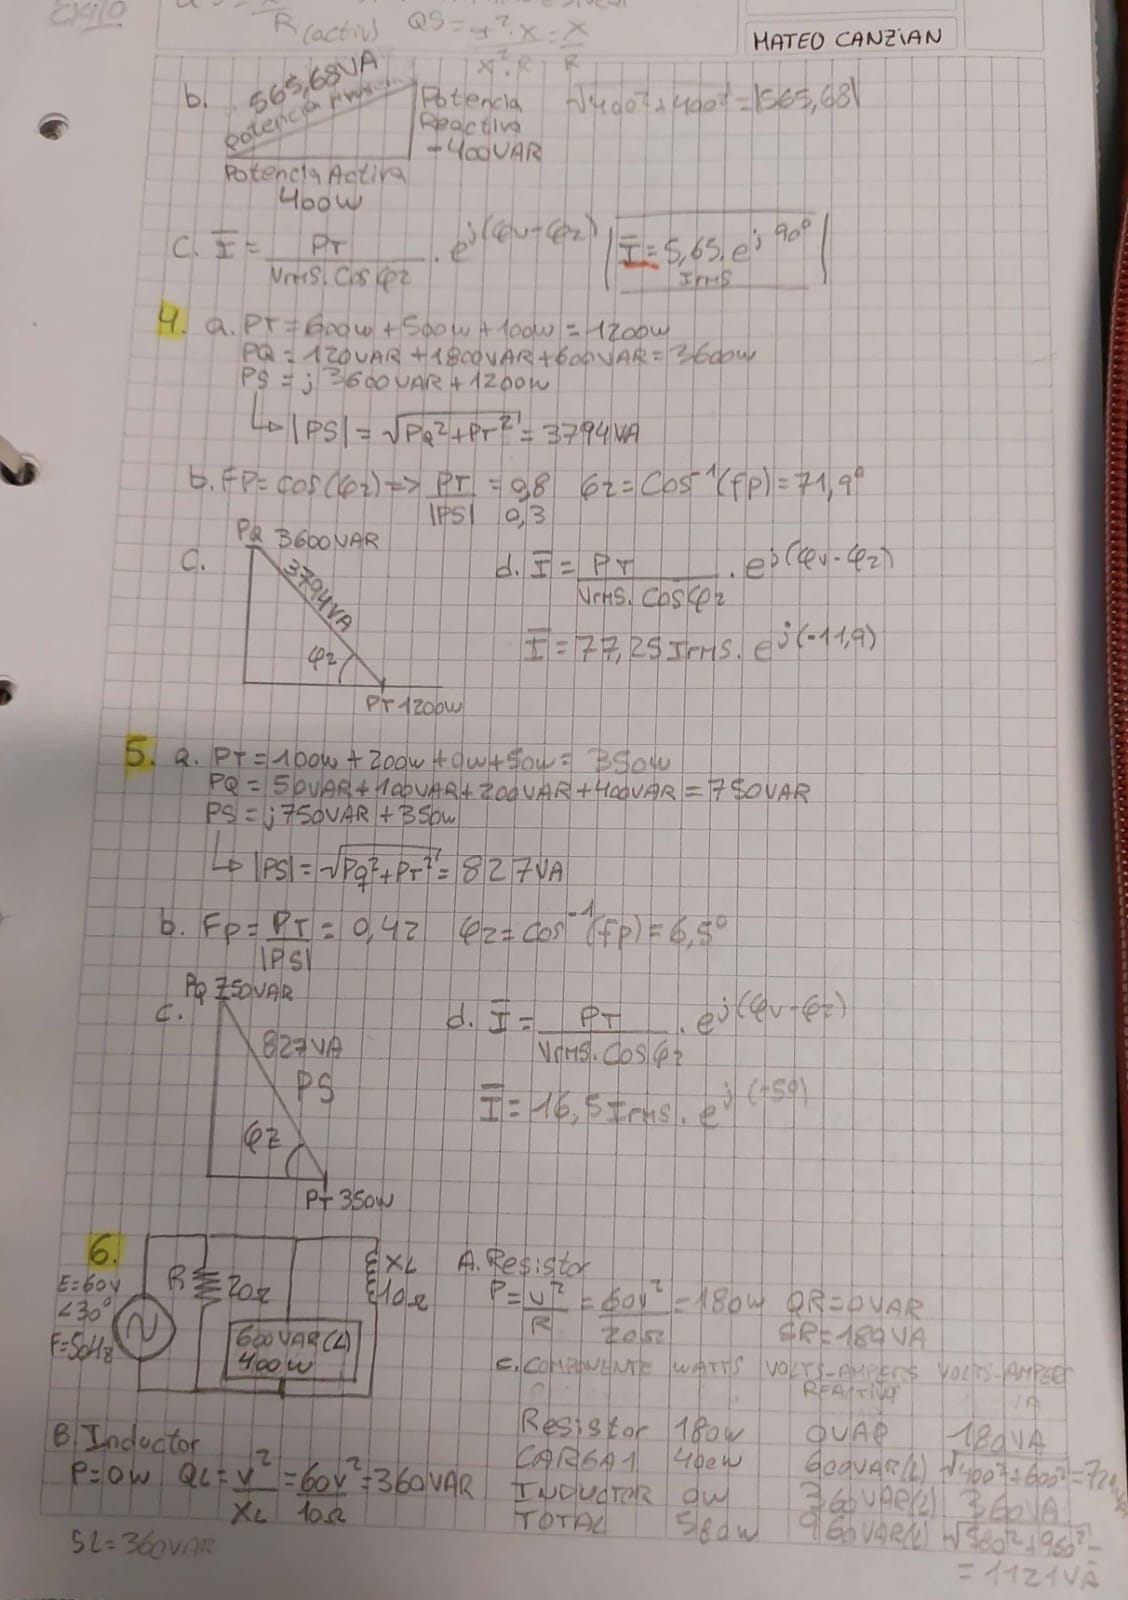 R (activ) QS = X
MATEO CANZIAN
b. 565,68VA
Potencia
Potencia
Reactiva
-400VAR
√400²+400² = |565,68|
Potencia Activa
400w
C. Ī = PT / Vrms. Cos φz . e^j(φv-φz) | Ī = 5,65. e^j 90° |
Irms
4. a. PT = 600w + 500w + 100w = 1200w
PQ = 120VAR + 1800VAR + 600VAR = 3600w
PS = j 3600VAR + 1200w
↳ |PS| = √PQ²+PT² = 3794VA
b. FP = cos(φz) => PT / |PS| = 0,8 0,3 φz = Cos⁻¹(fp) = 71,9°
C. PQ 3600VAR
3794VA
φz
PT 1200w
d. Ī = PT / Vrms. Cos φz . e^j(φv-φz)
Ī = 77,25 Irms. e^j(-11,9)
5. a. PT = 100w + 200w + 0w + 50w = 350w
PQ = 50VAR + 100VAR + 200VAR + 400VAR = 750VAR
PS = j750VAR + 350w
↳ |PS| = √PQ²+PT² = 827VA
b. Fp = PT / |PS| = 0,42 φz = cos⁻¹(fp) = 6,5°
C. PQ 750VAR
827VA
PS
φz
PT 350w
d. Ī = PT / Vrms. Cos φz . e^j(φv-φz)
Ī = 16,5 Irms. e^j
6.
E=60v
<30°
F=50Hz
R 20Ω
600VAR(L)
400w
XL
10Ω
A. Resistor
P = v² / R = 60v² / 20Ω = 180w QR = 0VAR
SR = 180VA
B. Inductor
P = 0w QL = v² / XL = 60v² / 10Ω = 360VAR
SL = 360VAR
C. COMPONENTE WATTS VOLTS-AMPERS REACTIVO VOLTS-AMPERS
Resistor 180w 0VAR 180VA
CARGA 1 400w 600VAR(L) √400²+600² =
INDUCTOR 0w 360VAR(L) 360VA
TOTAL 580w 960VAR(L) √580²+960² =
= 1121VA